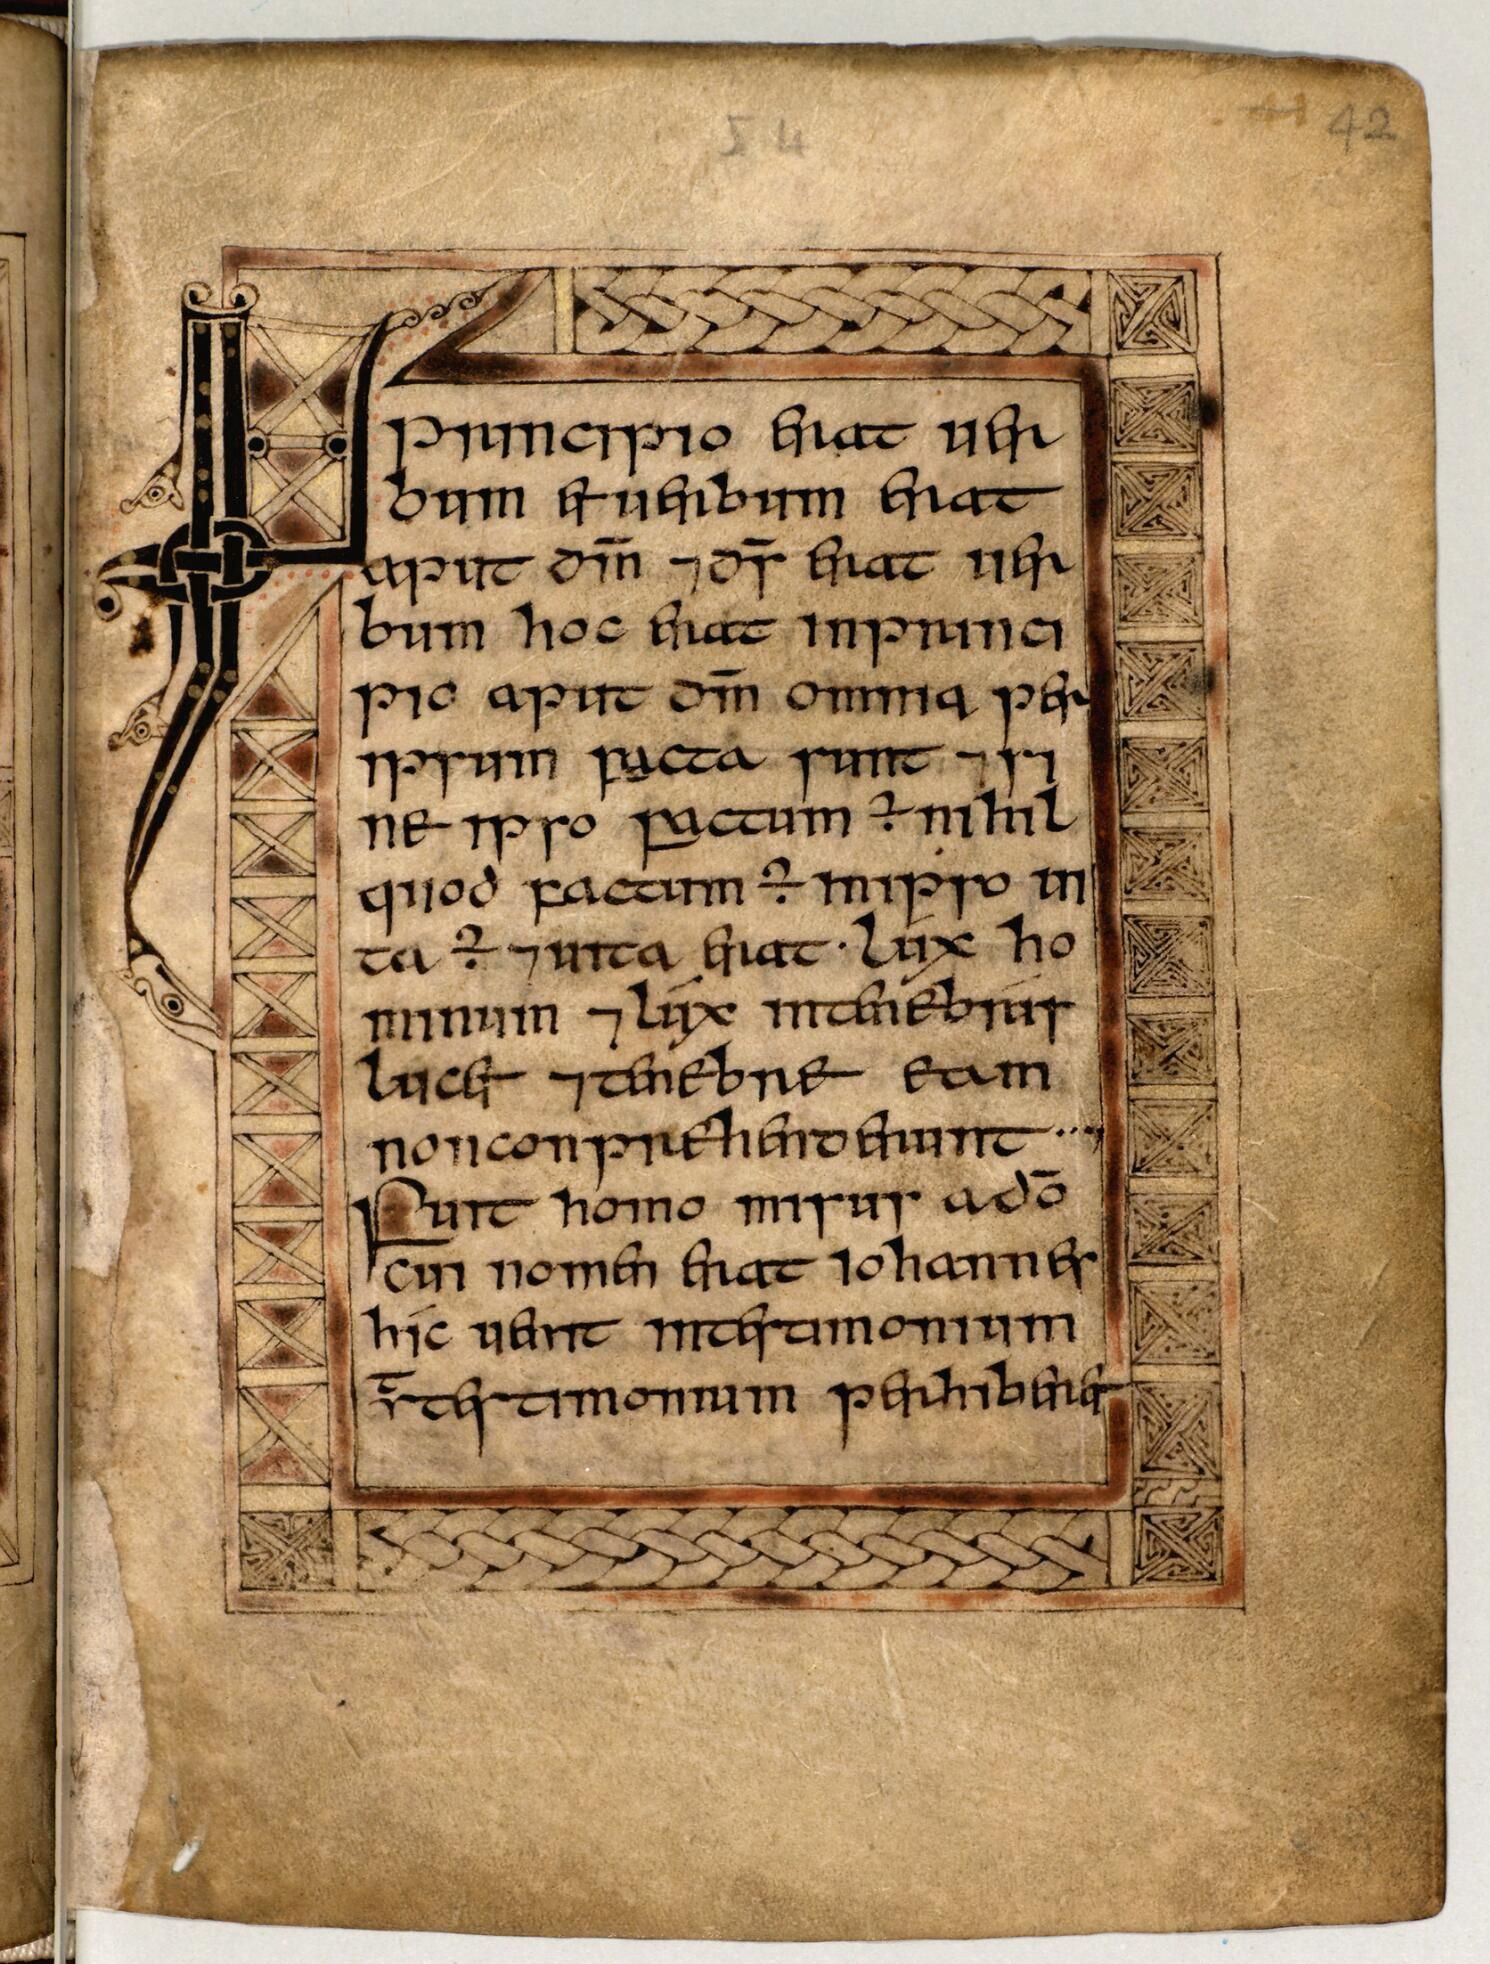 54
42
IN
principio erat uer
bum et uerbum erat
aput dm̄ ⁊ ds̄ erat uer
bum hoc erat inprinci
pio aput dm̄ omnia per
ipsum facta sunt ⁊ si
ne ipso factum ÷ nihil
quod factum ÷ inipso ui
ta ÷ ⁊ uita erat · lux ho
minum ⁊ lux intenebris
lucet ⁊ tenebre eam
nonconprehenderunt ···,
Fuit homo misus ado͞
cui nomen erat iohannes
hic uenit intestimonium
s̄ testimonium perhiberet